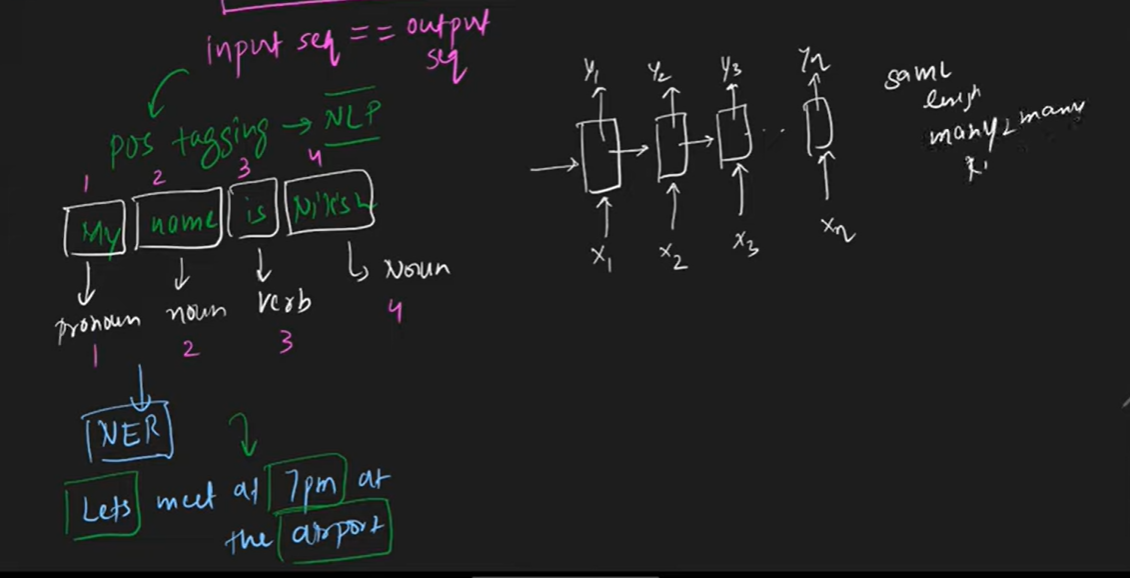 input seq == output
seq
pos tagging → NLP
1 2 3 4
My name is Nikish
pronoun noun verb Noun
1 2 3 4
NER
Lets meet at 7pm at
the airport
y1 y2 y3 yn
x1 x2 x3 xn
same
many2many